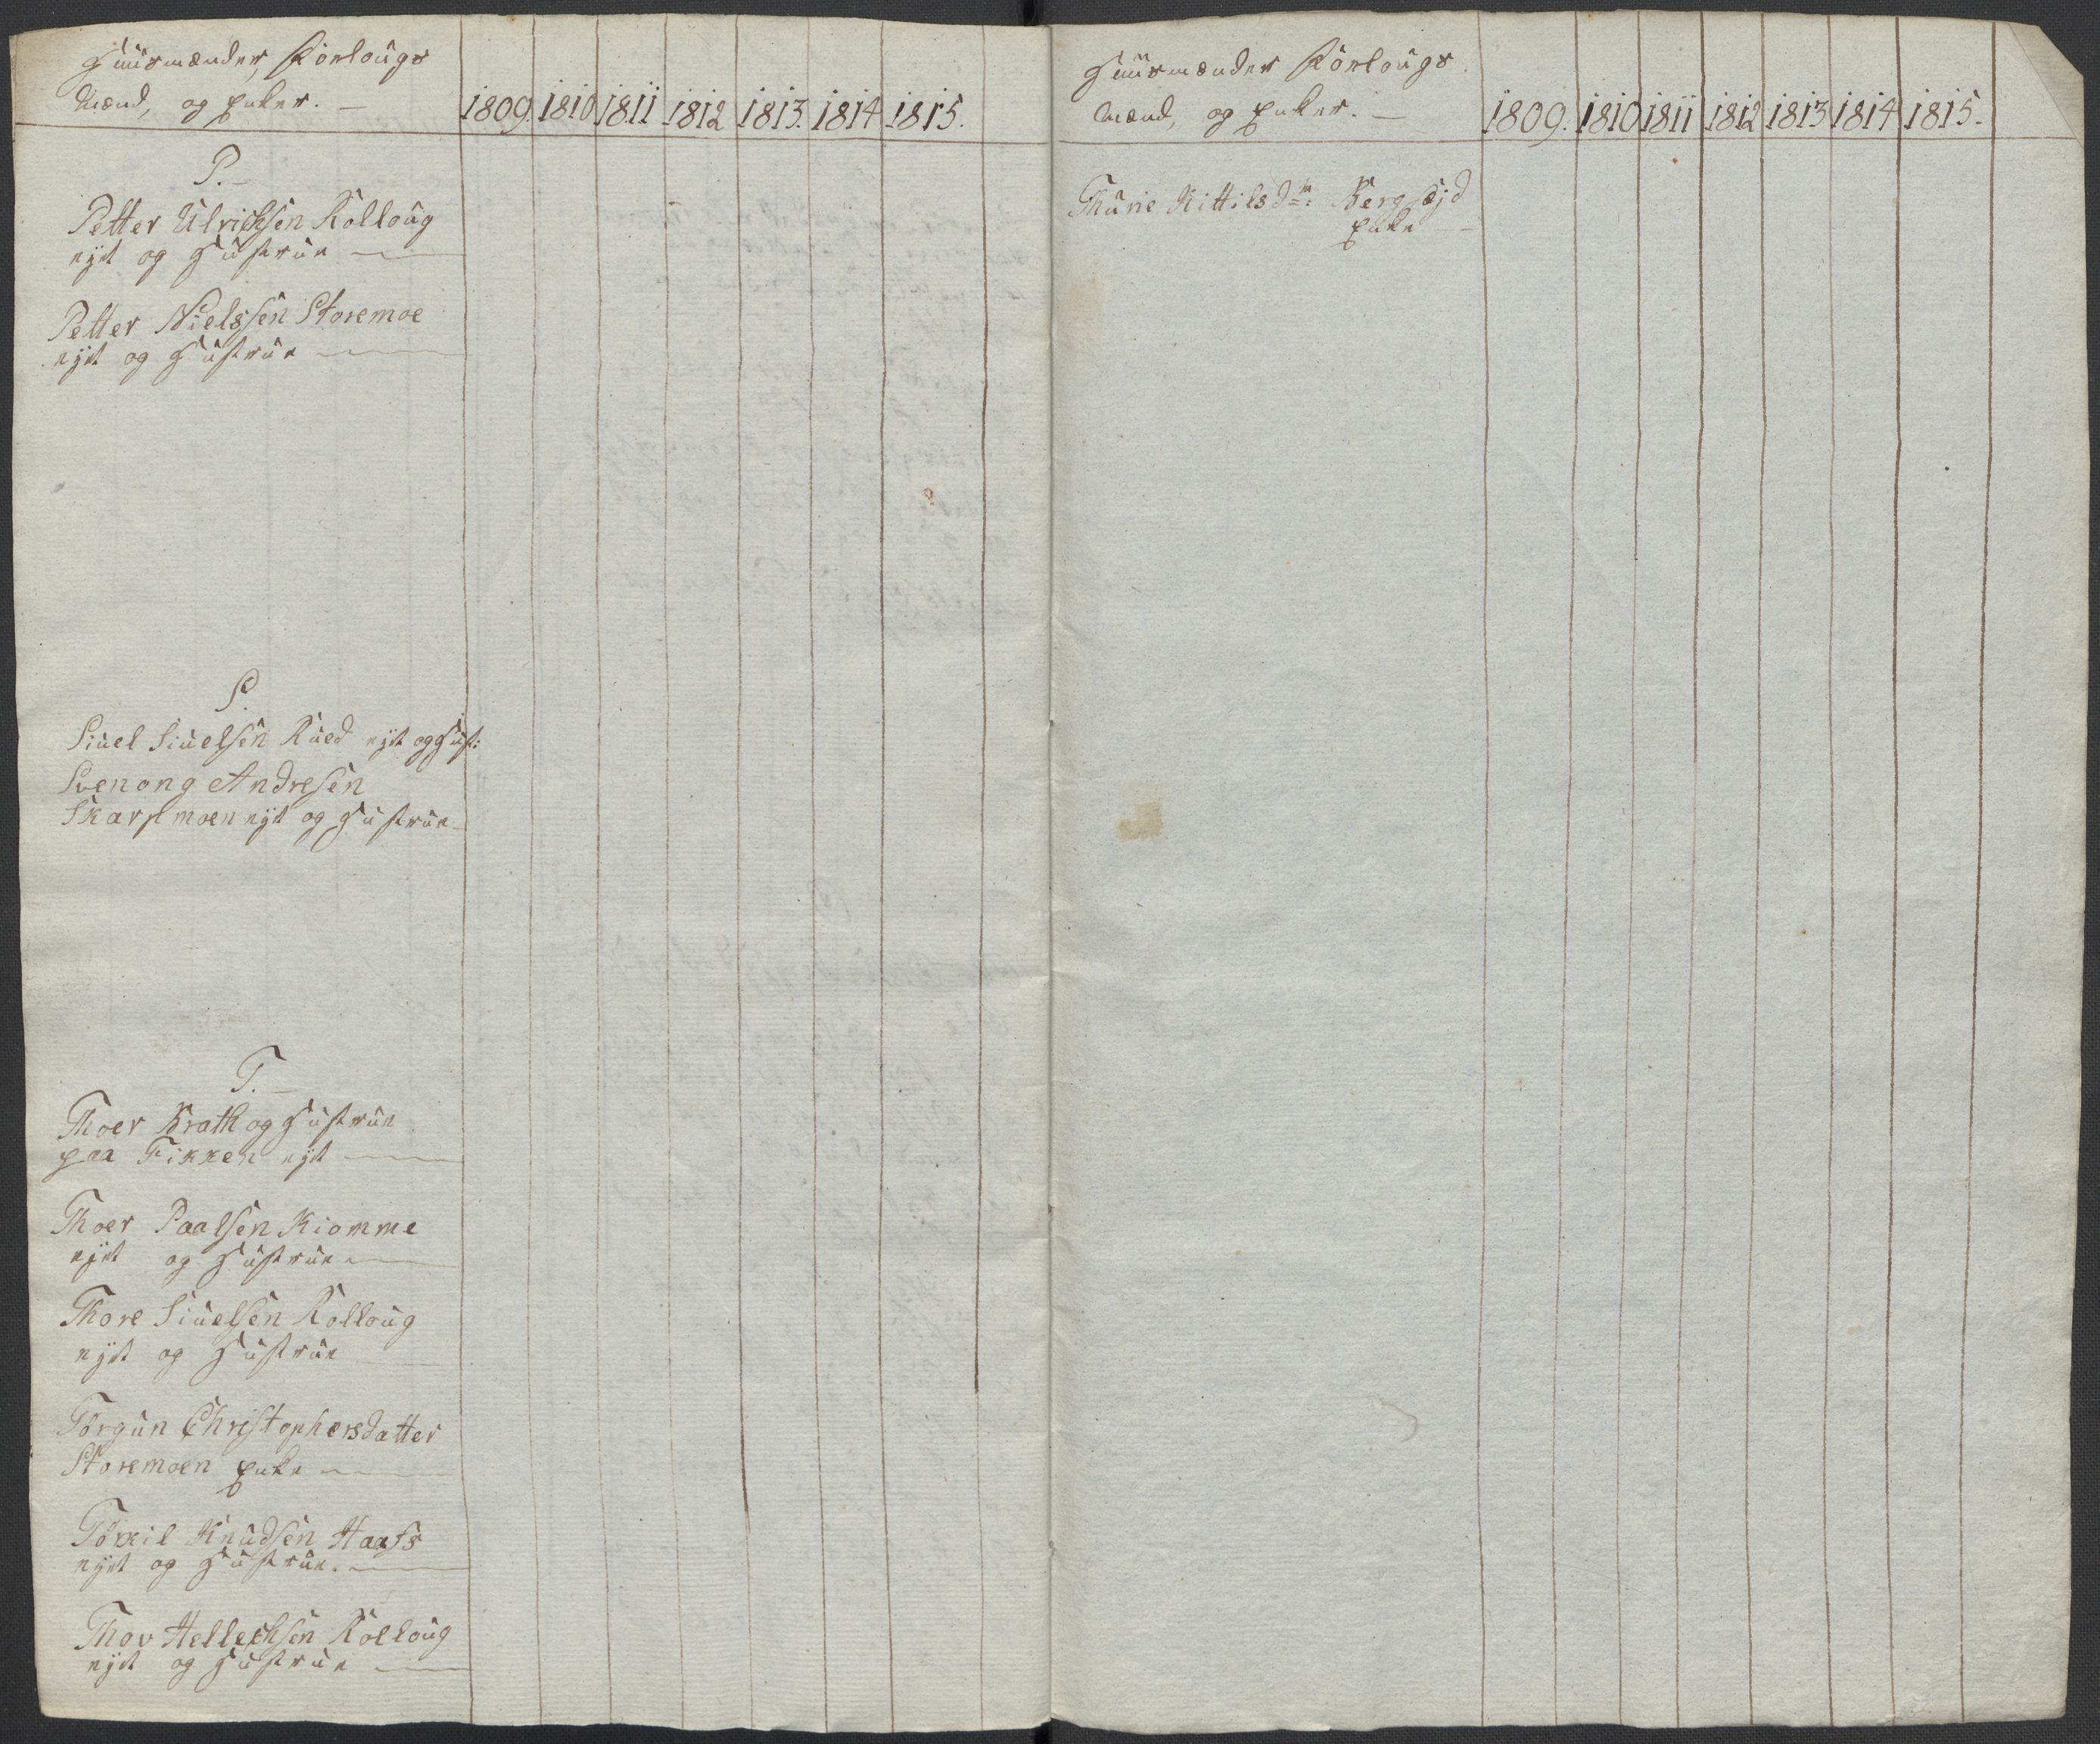 Huusmænder, Förlougs
Mænd, og Enker. —
1809. 1810 1811 1812 1813. 1814 1815.
P. —
Petter Ulrichsen Rolloug
nyt og Hustrue —
Petter Nielssen Storemoe
nyt og Hustrue —
S.
Siuel Siuelsen Rued nyt og Hust:
Svenong Andresen
Skarpmoen nyt og Hustrue —
T. —
Thoer Brath og Hustrue
paa Fikken nyt —
Thoer Paalsen Kiomme
nyt og Hustrue —
Thore Siuelsen Rolloug
nyt og Hustrue
Torgun Christophersdatter
Storemoen Enke —
Torkil Knudsen Haafs
nyt og Hustrue. —
Thov Hellechsen Rolloug
nyt og Hustrue —
Huusmænder Förlougs
Mænd, og Enker. —
1809. 1810 1811 1812 1813 1814 1815.
Thurie Kittilsd: Bergsejd
Enke —